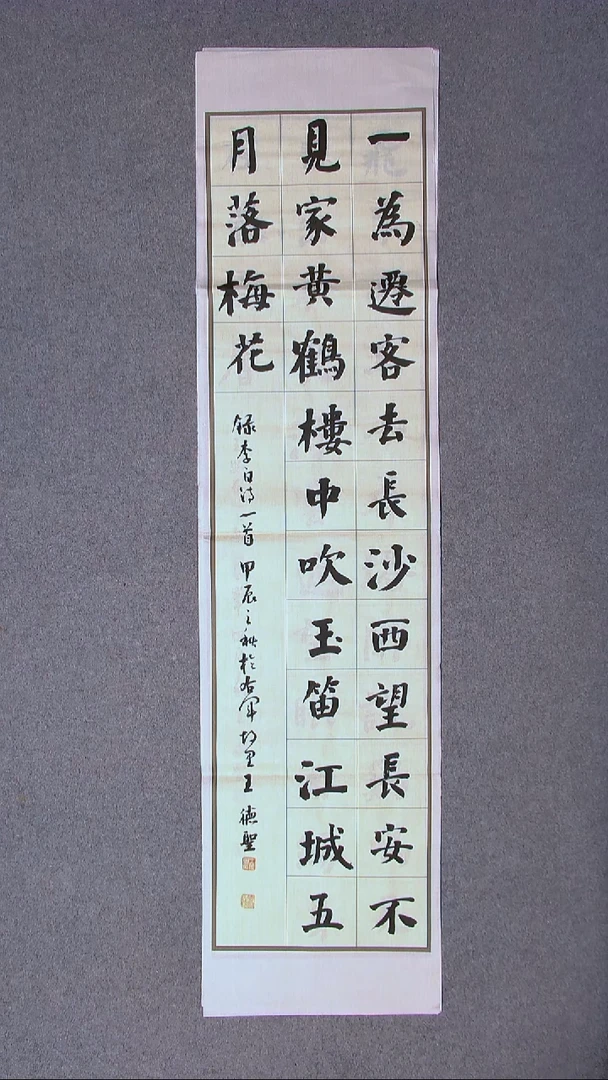 一為遷客去長沙西望長安不
見家黃鶴樓中吹玉笛江城五
月落梅花
録李白詩一首甲辰之秋於右軍故里王德聖